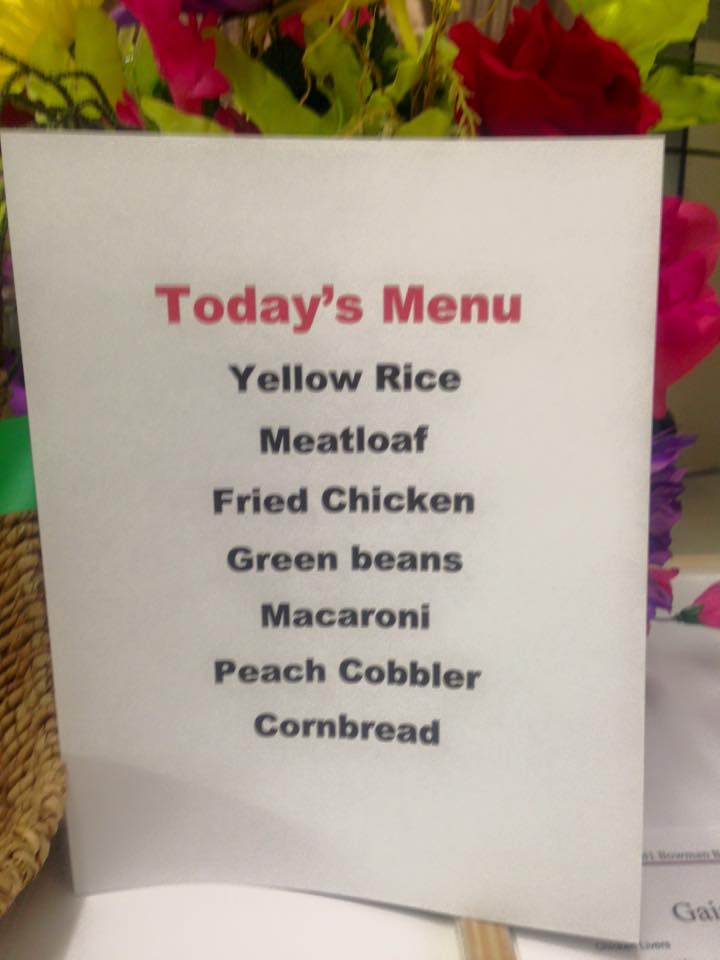 Today's Menu
Yellow Rice
Meatloaf
Fried Chicken
Green beans
Macaroni
Peach Cobbler
Cornbread
Bowman
Livers